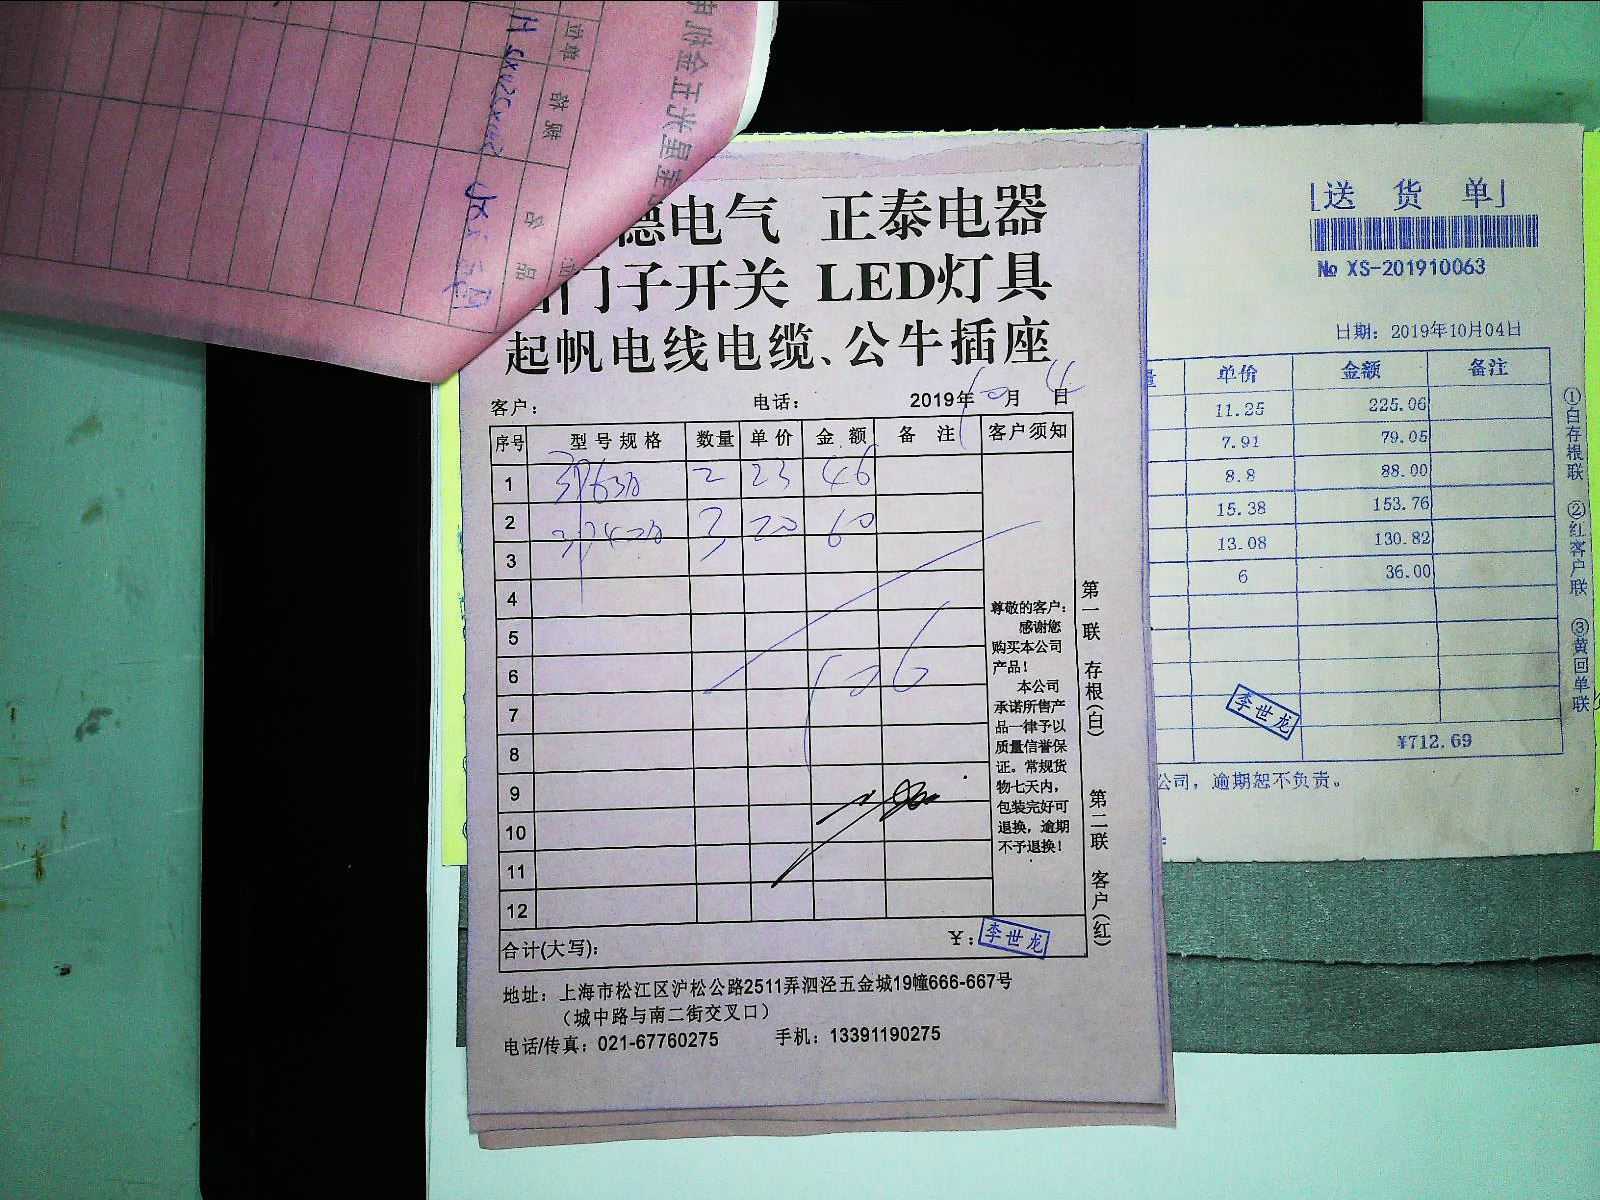 德电气 正泰电器
门子开关 LED灯具
起帆电线电缆、公牛插座
客户： 电话： 2019年10月4日
序号 型号规格 数量 单价 金额 备注 客户须知
1 3P63A 2 23 46
2 3P40A 3 20 60
3
4
5
6 106
7
8
9
10
11
12
尊敬的客户：
感谢您
购买本公司
产品！
本公司
承诺所售产
品一律予以
质量信誉保
证。常规货
物七天内，
包装完好可
退换，逾期
不予退换！
合计(大写)： ￥：
李世龙
第一联 存根(白) 第二联 客户(红)
地址：上海市松江区沪松公路2511弄泗泾五金城19幢666-667号
（城中路与南二街交叉口）
电话/传真：021-67760275 手机：13391190275
送货单
№ XS-201910063
日期：2019年10月04日
单价 金额 备注
11.25 225.06
7.91 79.05
8.8 88.00
15.38 153.76
13.08 130.82
6 36.00
李世龙
¥712.69
公司，逾期恕不负责。
①白存根联 ②红客户联 ③黄回单联